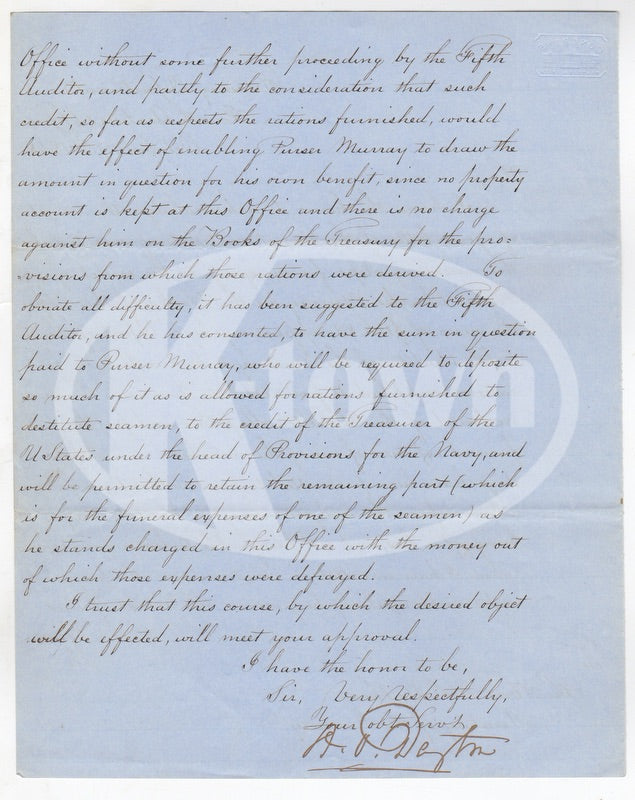 Office without some further proceeding by the Fifth
Auditor, and partly to the consideration that such
credit, so far as respects the rations furnished, would
have the effect of enabling Purser Murray to draw the
amount in question for his own benefit, since no property
account is kept at this Office and there is no charge
against him on the Books of the Treasury for the pro=
=visions from which those rations were derived. To
obviate all difficulty, it has been suggested to the Fifth
Auditor, and he has consented, to have the sum in question
paid to Purser Murray, who will be required to deposite
so much of it as is allowed for rations furnished to
destitute seamen, to the credit of the Treasurer of the
UStates under the head of Provisions for the Navy, and
will be permitted to retain the remaining part (which
is for the funeral expenses of one of the seamen) as
he stands charged in this Office with the money out
of which those expenses were defrayed.
I trust that this course, by which the desired object
will be effected, will meet your approval.
I have the honor to be,
Sir, Very respectfully,
Your obt Servt
A. O. Dayton
K-town